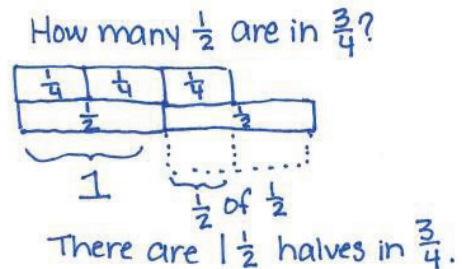 How many 1/2 are in 3/4?
1/4 1/4 1/4
1/2 1/2
1
1/2 of 1/2
There are 1 1/2 halves in 3/4.